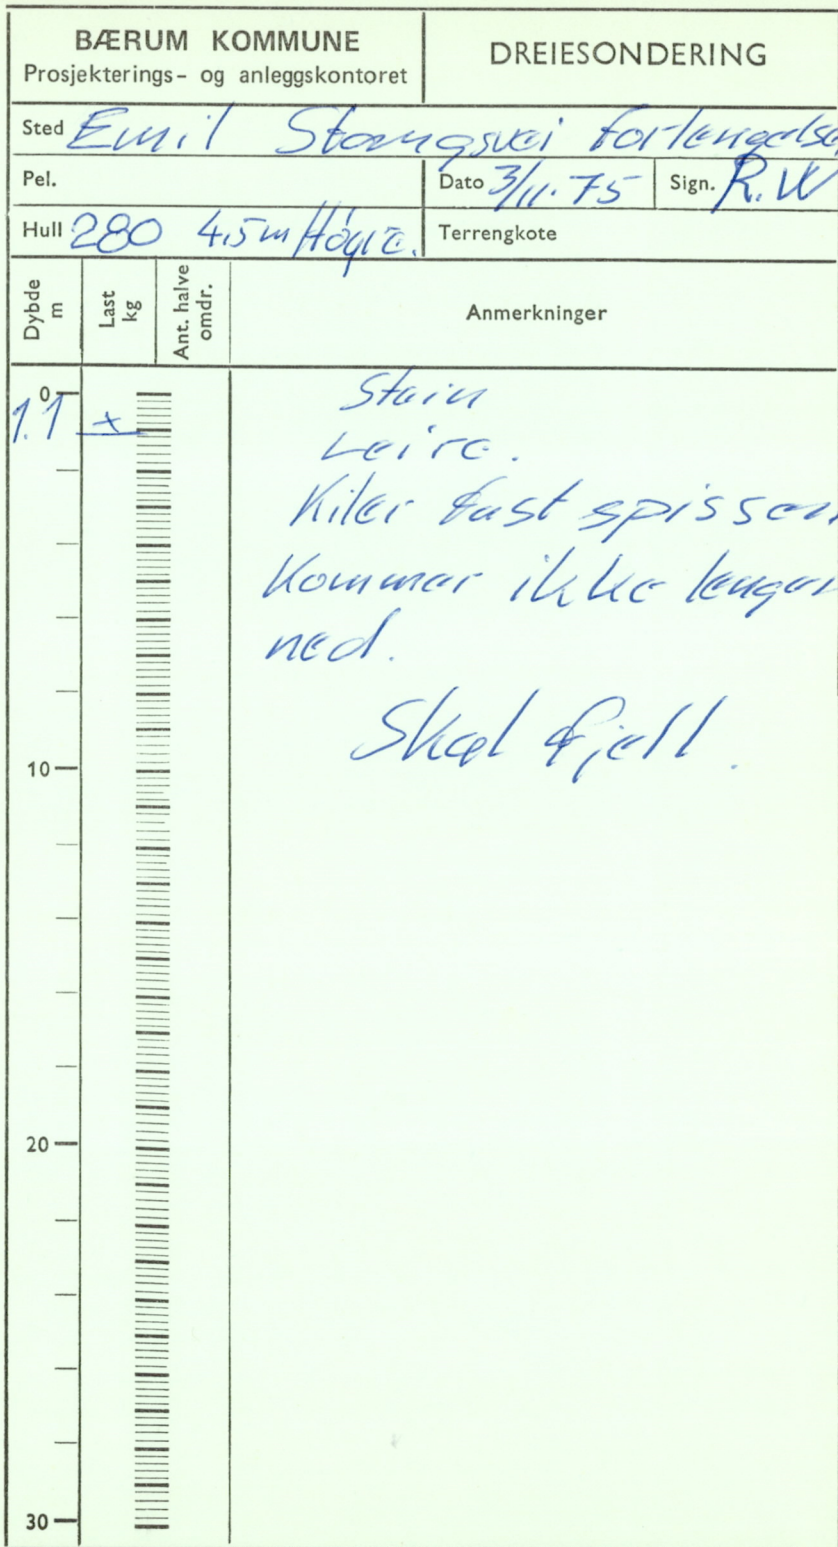 BÆRUM KOMMUNE
Prosjekterings- og anleggskontoret
DREIESONDERING
Sted Emil Stangsvei forlengelse
Pel.
Dato 3/11.75
Sign. R.W
Hull 280 4,5m Høgre.
Terrengkote
Dybde m
Last kg
Ant. halve omdr.
Anmerkninger
0
1.1 x
Stein
Leire.
Kiler fast spissen
Kommer ikke lenger
ned.
fjell.
10
20
30